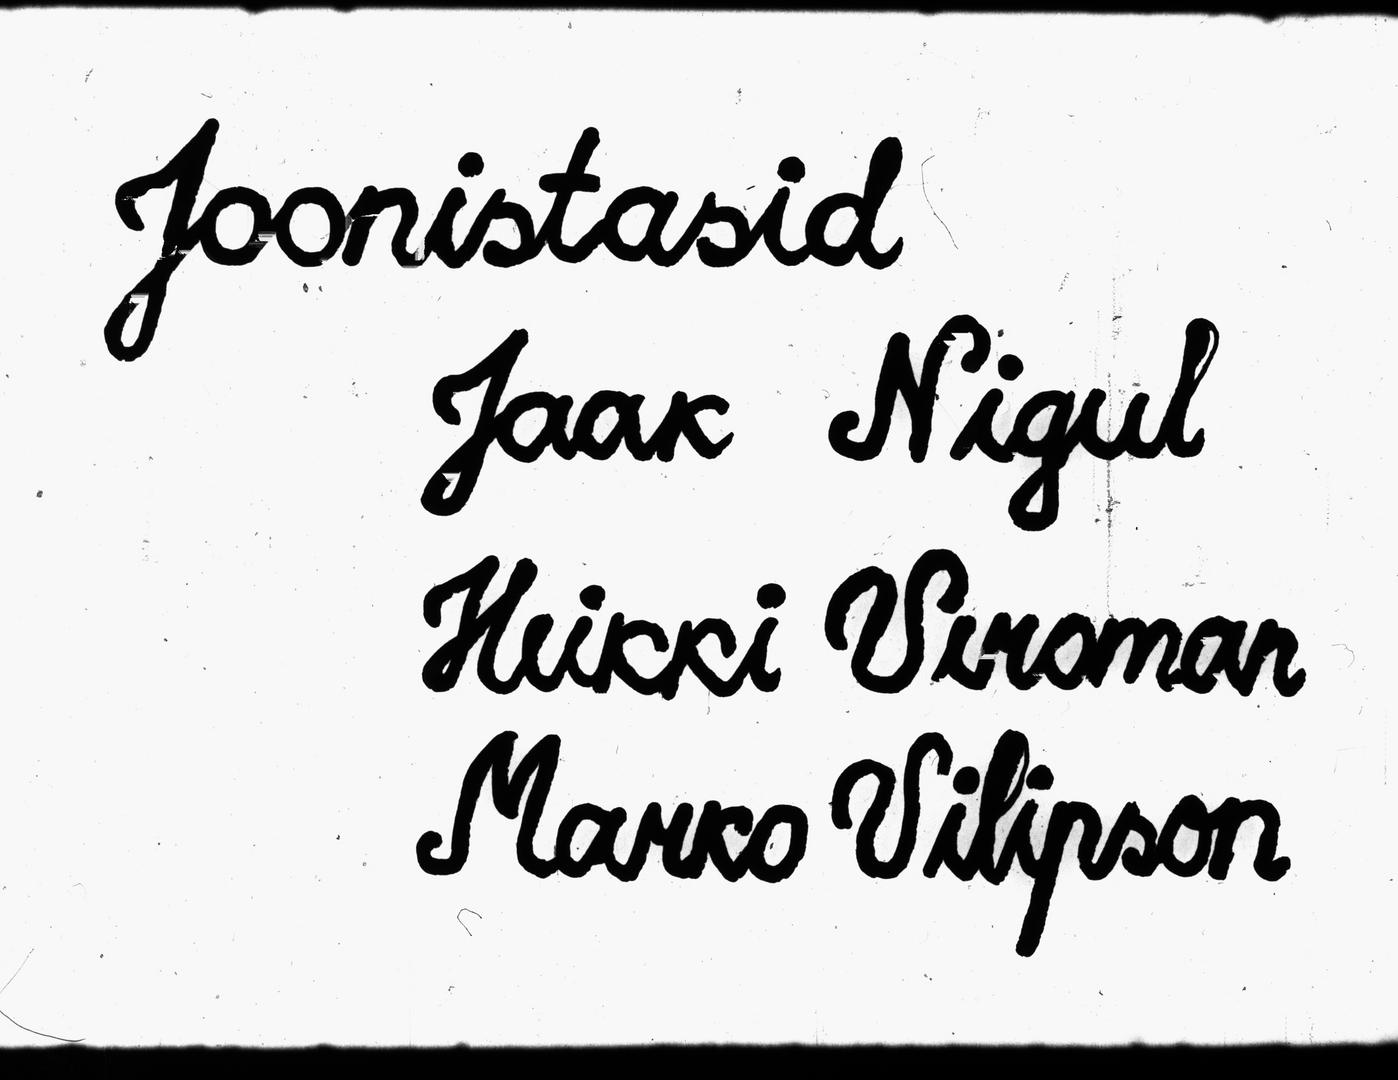 Joonistasid
Jaak Nigul
Heikki Viroman
Marko Vilipson